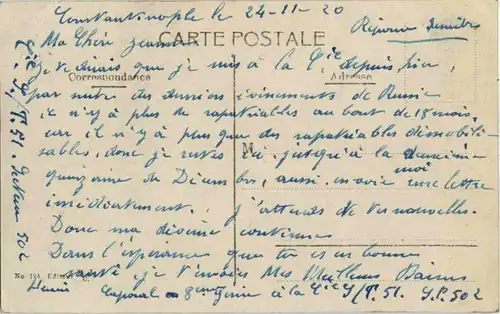 Constantinople le 24-11-20
Réponse
Ma Chère Jeanne
CARTE POSTALE
Je te dirais que je suis à la Cie depuis hier,
Correspondance
Adresse
par suite des derniers évènements de Russie
il n'y a plus de rapatriables au bout de 18 mois,
car il n'y a plus que des rapatriables démobili
sables, donc je reste ici jusqu'à la deuxième
quinzaine de Décembre, aussi envoie moi une lettre
immédiatement. J'attends de tes nouvelles.
Donc ma division continue
Dans l'espérance que tu es en bonne
santé je t'envoies Mes Meilleurs Baisers
No. 124, Edit
Henri Caporal 8eme Génie à la Cie S/T. 51. S.P. 502
Cie S/T. 51. Secteur 502